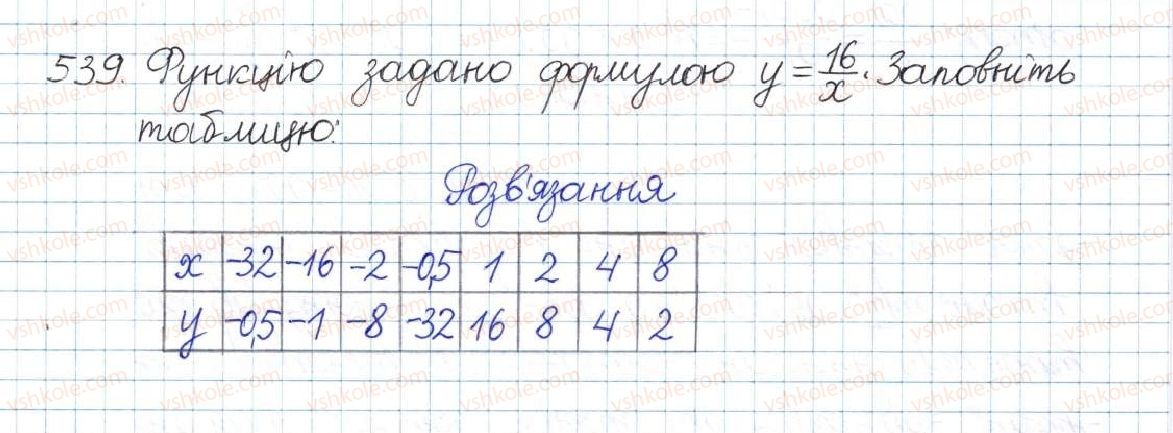 539. Функцію задано формулою y = 16/x. Заповніть
таблицю:
Розв'язання
x -32 -16 -2 -0,5 1 2 4 8
y -0,5 -1 -8 -32 16 8 4 2